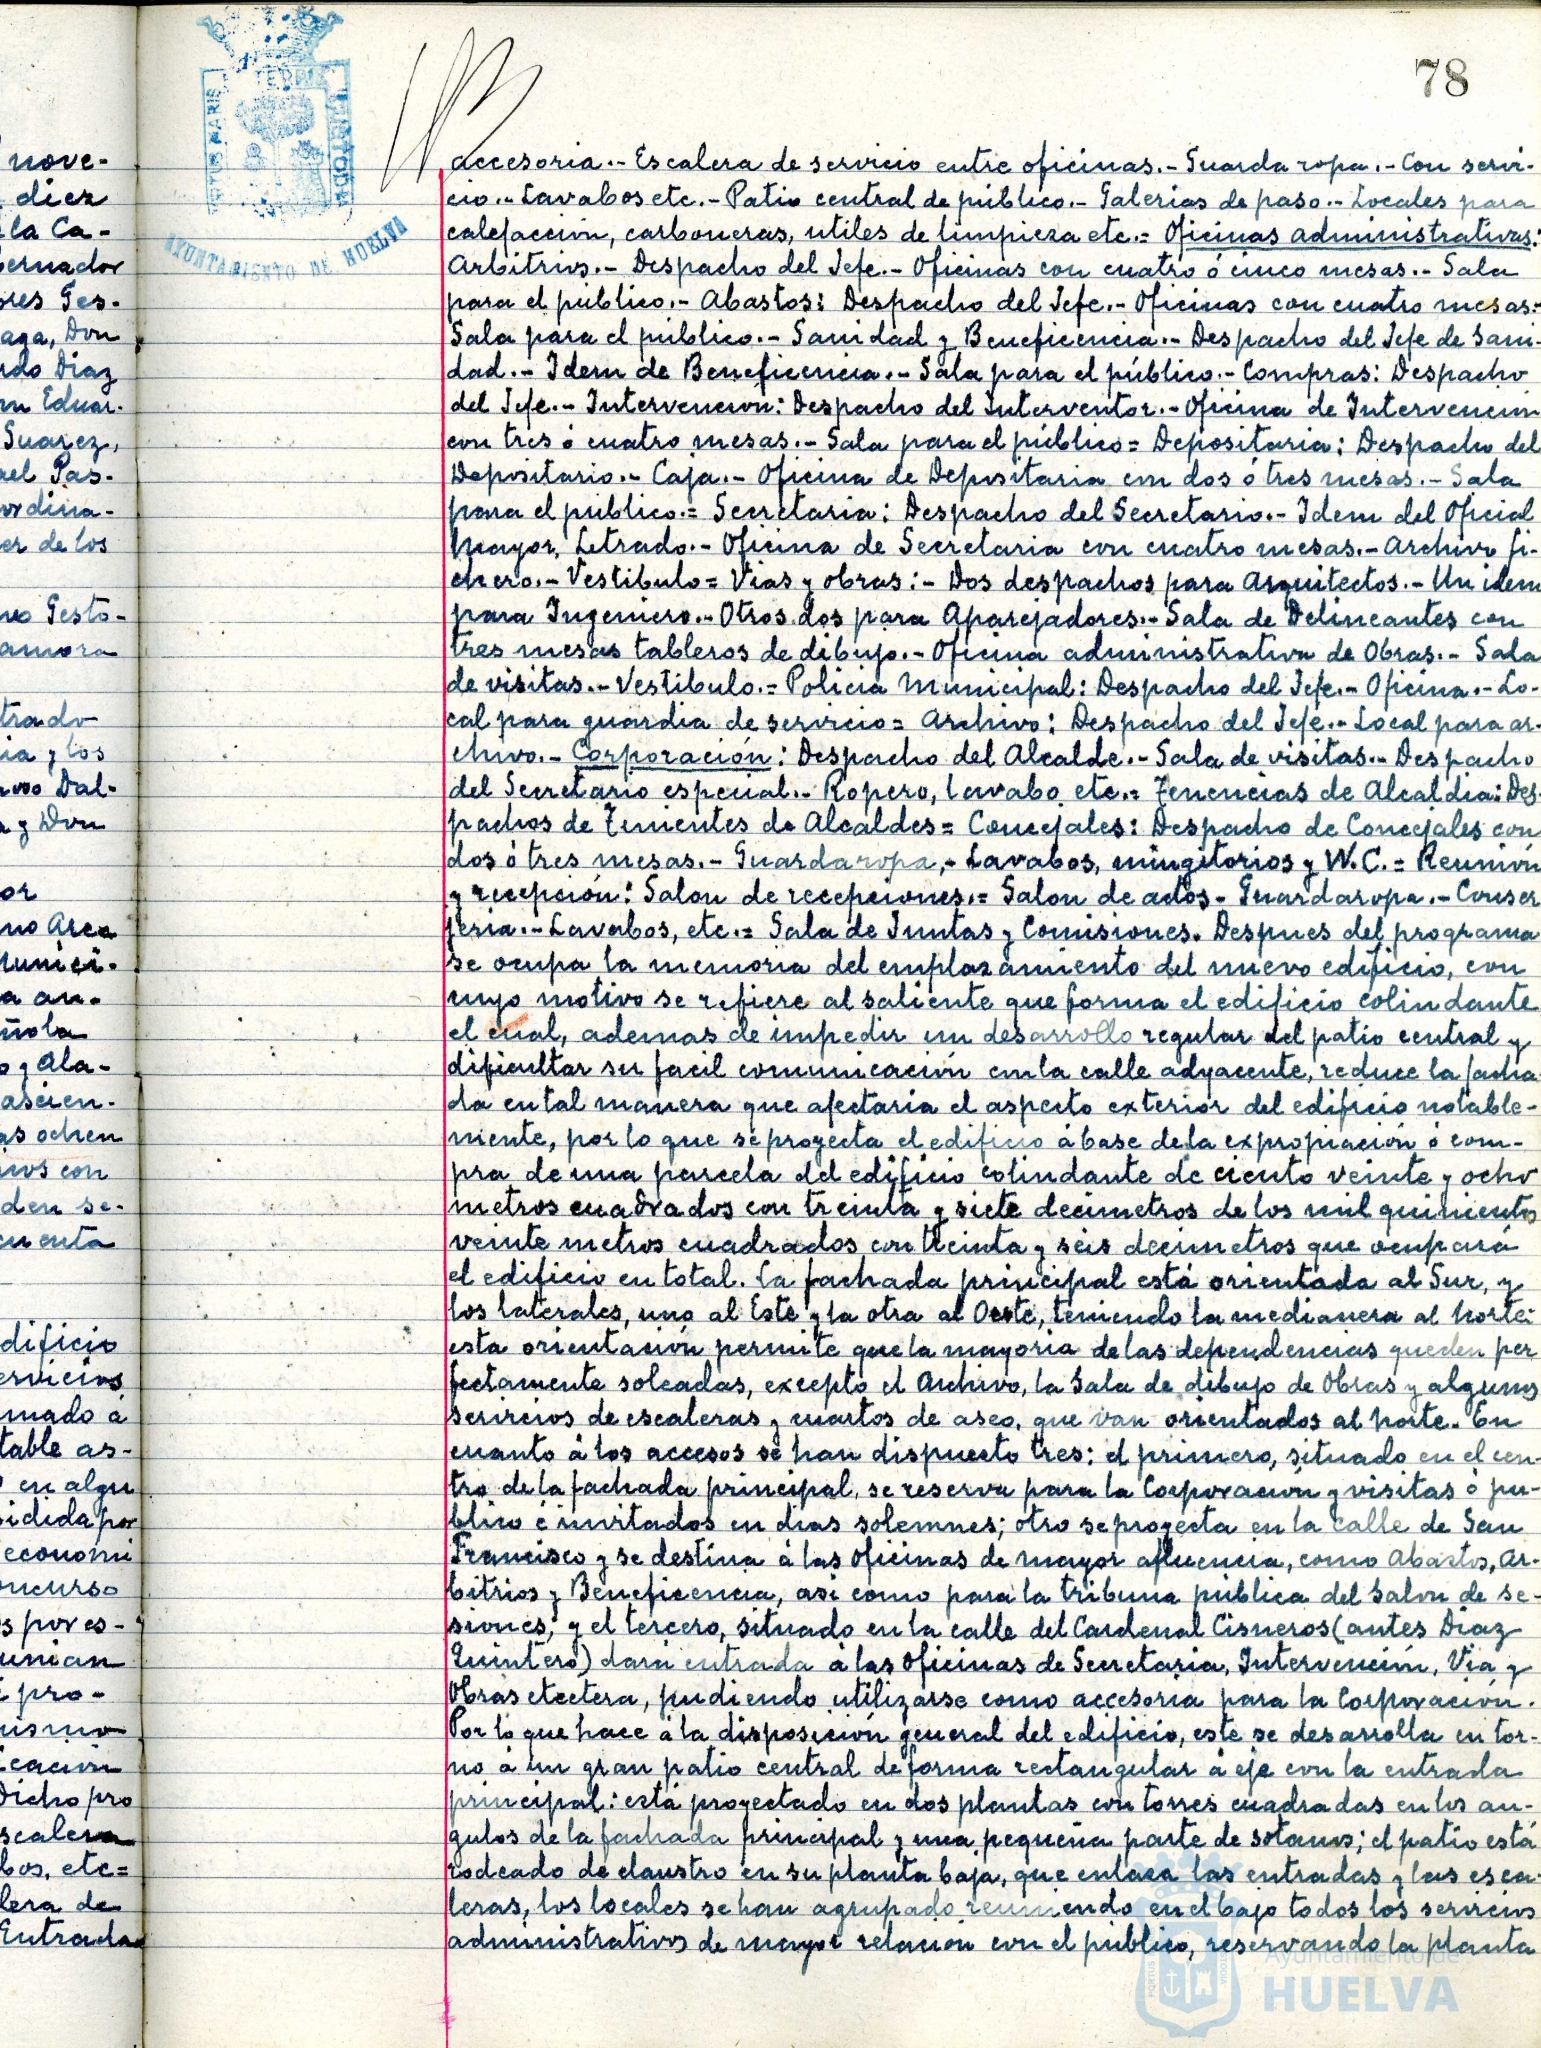 78
accesoria.- Escalera de servicio entre oficinas.- Guarda ropa.- Con servi-
cio.- Lavabos etc.- Patio central de público.- Galerias de paso.- Locales para
calefaccion, carboneras, utiles de limpieza etc.= Oficinas administrativas:
Arbitrios.- Despacho del Jefe.- Oficinas con cuatro ó cinco mesas.- Sala
para el público.- Abastos: Despacho del Jefe.- Oficinas con cuatro mesas.-
Sala para el público.- Sanidad y Beneficencia.- Despacho del Jefe de Sani-
dad.- Idem de Beneficencia.- Sala para el público.- Compras: Despacho
del Jefe.- Intervencion: Despacho del Interventor.- Oficina de Intervencion
con tres ó cuatro mesas.- Sala para el público= Depositaria: Despacho del
Depositario.- Caja.- Oficina de Depositaria con dos ó tres mesas.- Sala
para el público.= Secretaria: Despacho del Secretario.- Idem del Oficial
Mayor, Letrado.- Oficina de Secretaria con cuatro mesas.- Archivo fi-
chero.- Vestibulo= Vias y obras:- Dos despachos para Arquitectos.- Un idem
para Ingeniero.- Otros dos para Aparejadores.- Sala de Delineantes con
tres mesas tableros de dibujo.- Oficina administrativa de Obras.- Sala
de visitas.- Vestibulo.= Policia Municipal: Despacho del Jefe.- Oficina.- Lo-
cal para guardia de servicio= Archivo: Despacho del Jefe.- Local para ar-
chivo.- Corporación: Despacho del Alcalde.- Sala de visitas.- Despacho
del Secretario especial.- Ropero, lavabo, etc.= Tenencias de Alcaldia: Des-
pachos de Tenientes de Alcaldes= Concejales: Despacho de Concejales con
dos ó tres mesas.- Guardaropa,- Lavabos, mingitorios y W.C.= Reunión
y recepción: Salon de recepciones.= Salon de actos- Guardaropa.- Conser
jeria.- Lavabos, etc.= Sala de Juntas y Comisiones. Despues del programa
se ocupa la memoria del emplazamiento del nuevo edificio, con
cuyo motivo se refiere al saliente que forma el edificio colindante
el cual, ademas de impedir un desarrollo regular del patio central y
dificultar su facil comunicación con la calle adyacente, reduce la facha-
da en tal manera que afectaria el aspecto exterior del edificio notable-
mente, por lo que se proyecta el edificio á base de la expropiación ó com-
pra de una parcela del edificio colindante de ciento veinte y ocho
metros cuadrados con treinta y siete decimetros de los mil quinientos
veinte metros cuadrados con treinta y seis decimetros que ocupará
el edificio en total. La fachada principal está orientada al Sur, y
los laterales, una al Este y la otra al Oeste, teniendo la medianera al Norte:
esta orientación permite que la mayoria de las dependencias queden per
fectamente soleadas, excepto el Archivo, la Sala de dibujo de Obras y algunos
servicios de escaleras y cuartos de aseo, que van orientados al Norte. En
cuanto á los accesos se han dispuesto tres: el primero, situado en el cen-
tro de la fachada principal, se reserva para la Corporacion y visitas ó pu-
blico é invitados en dias solemnes; otro se proyecta en la calle de San
Francisco y se destina á las oficinas de mayor afluencia, como Abastos, Ar-
bitrios y Beneficencia, asi como para la tribuna pública del salon de se-
siones; y el tercero, situado en la calle del Cardenal Cisneros (antes Diaz
Quintero) dara entrada á las oficinas de Secretaria, Intervención, Via y
Obras etcetera, pudiendo utilizarse como accesoria para la Corporación.
Por lo que hace á la disposición general del edificio, este se desarrolla en tor-
no á un gran patio central de forma rectangular á eje con la entrada
principal: está proyectado en dos plantas con torres cuadradas en los an-
gulos de la fachada principal y una pequeña parte de sotanos; el patio está
rodeado de claustro en su planta baja, que enlaza las entradas y las esca-
leras, los locales se han agrupado reuniendo en el bajo todos los servicios
administrativos de mayor relacion con el público, reservando la planta
AYUNTAMIENTO DE HUELVA
Ayuntamiento de
HUELVA
nove-
diez
la Ca-
bernador
ores Ges-
aga, Don
rdo Diaz
on Eduar-
Suarez,
ael Pas-
ordina-
er de los
vo Gesto-
amora
trado
ia y los
Dal-
a y Don
or
no Area
Munici-
a an-
ñola
o y Ala-
ascien-
as ochen
mos con
den se-
cuenta
dificio
ervicios
mado á
table as-
en algu
sidida por
economi
oncurso
s por es-
unian
pro-
mismo
icacion
Dicho pro
scalera
bos, etc=
lera de
Entrada